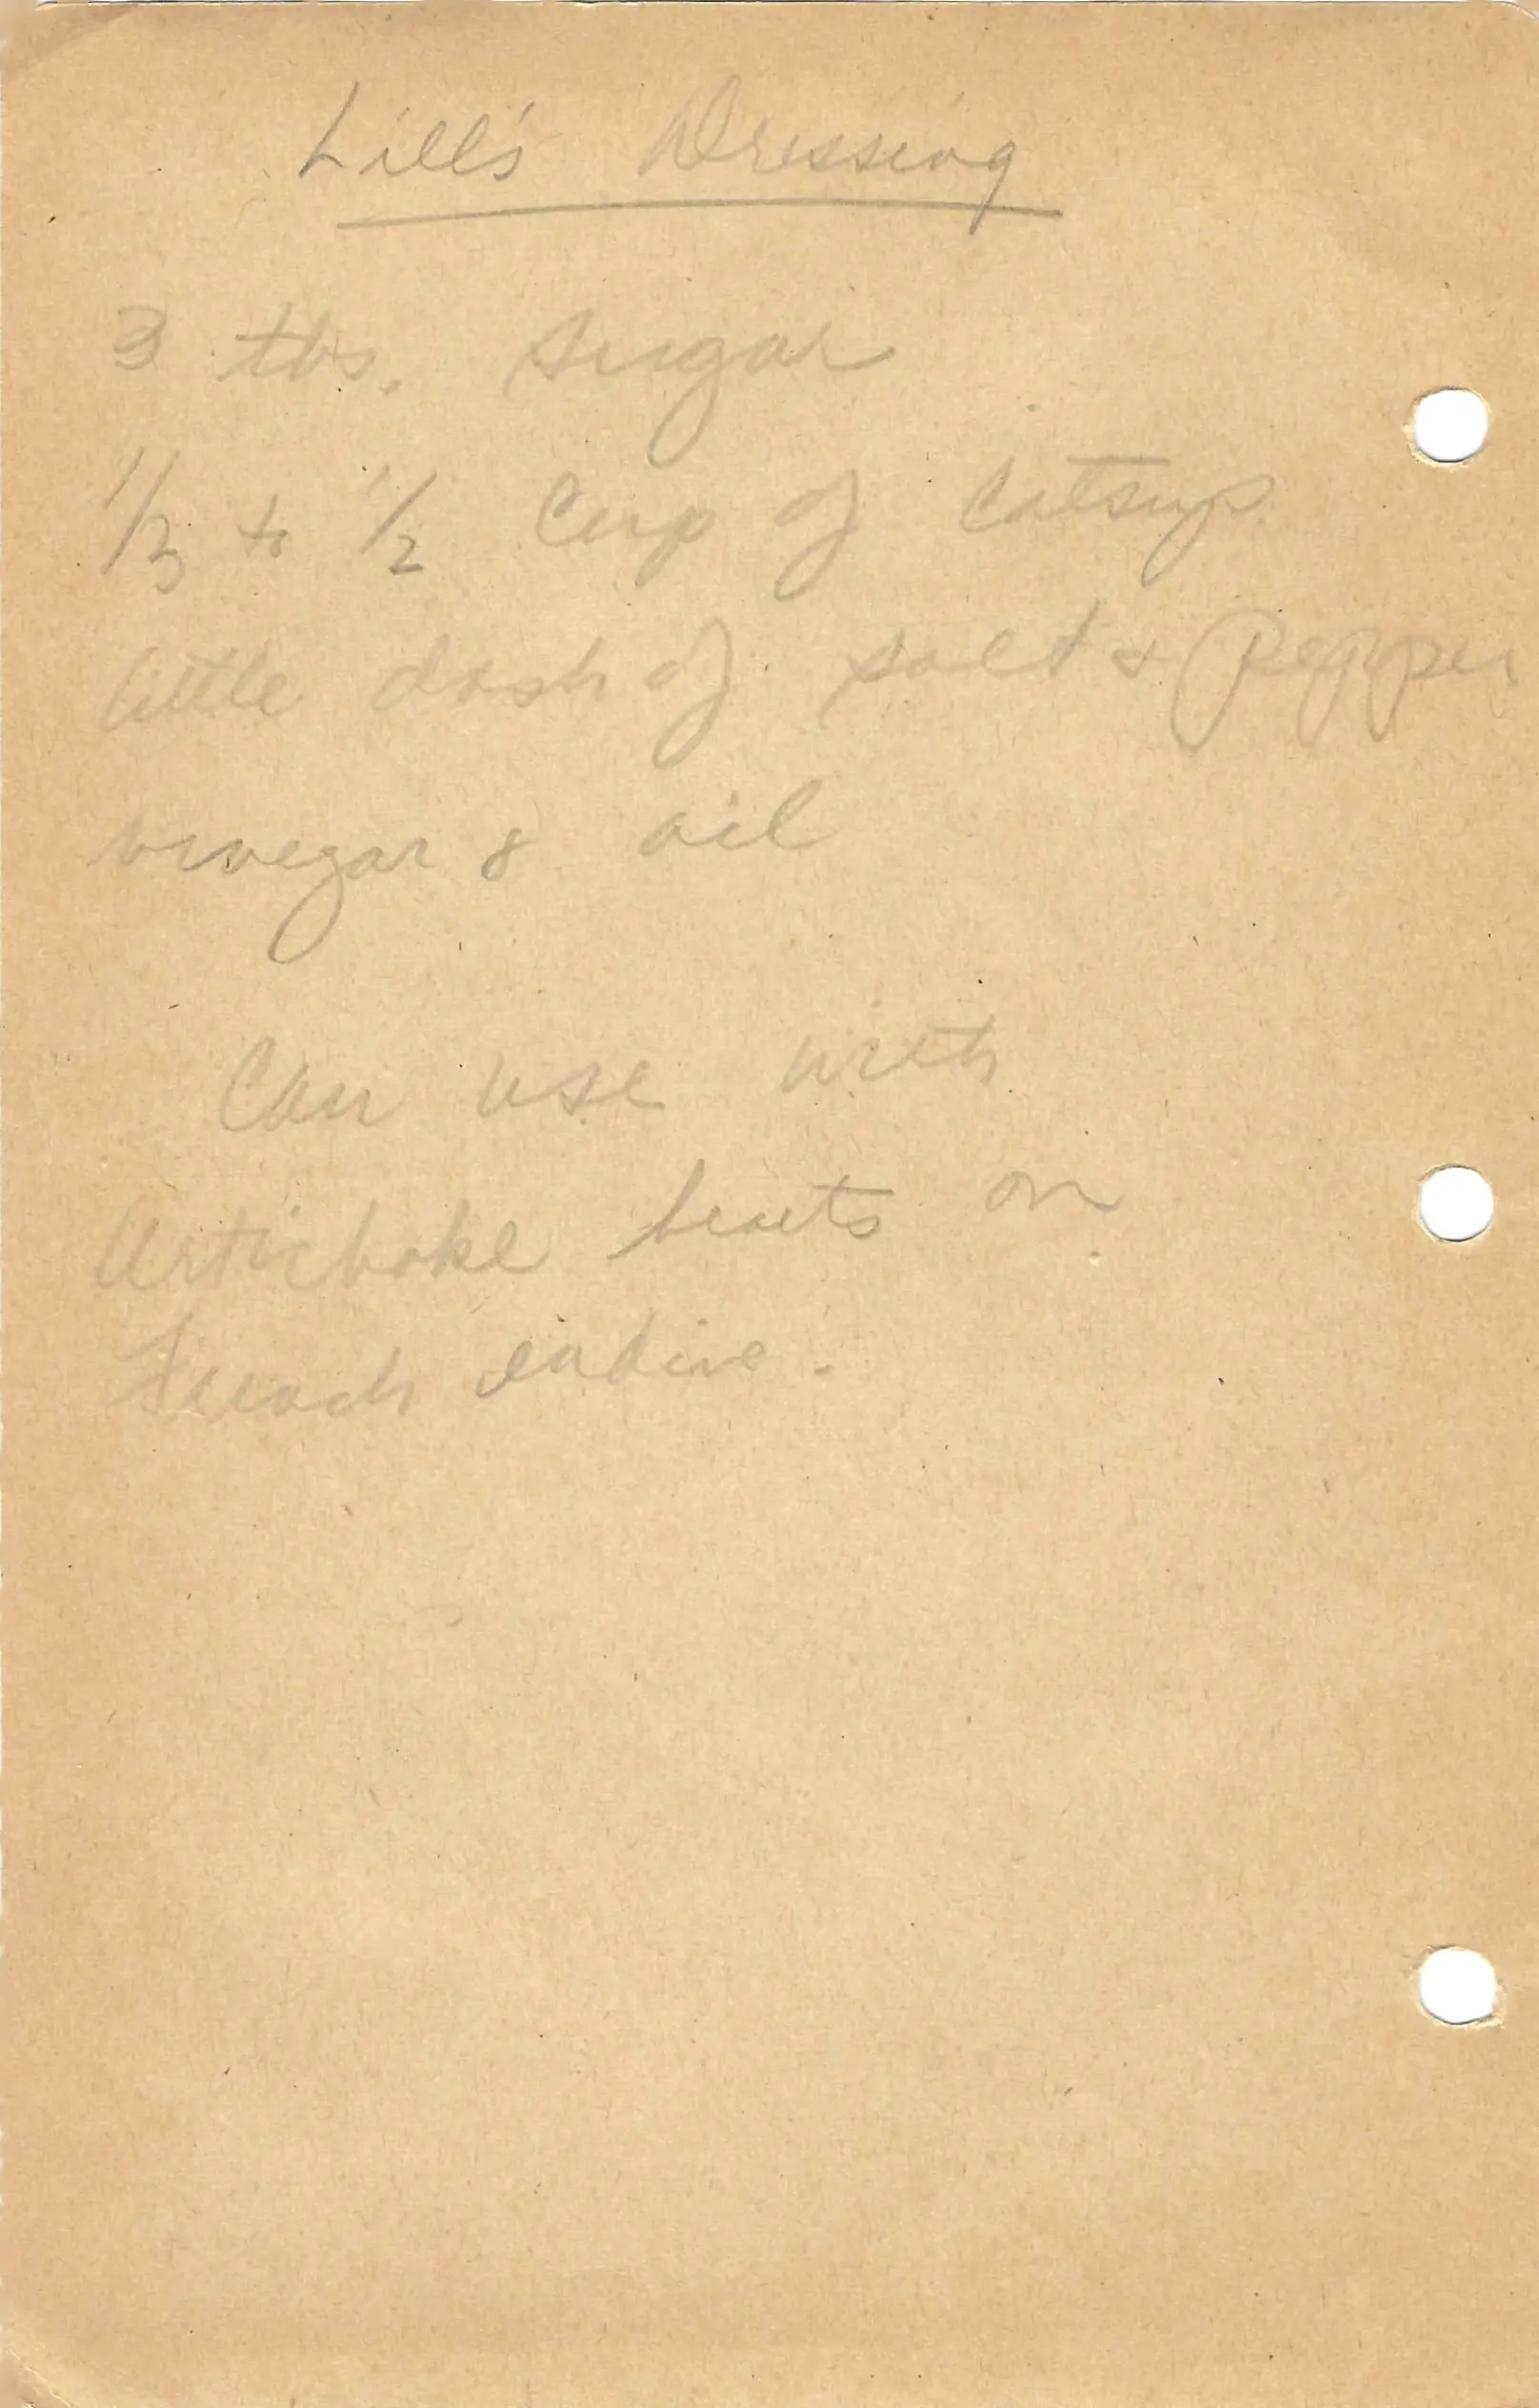 Lill's Dressing
3 tbs. sugar
1/3 to 1/2 Cup of Catsup
little dash of salt & Pepper
vinegar & oil
Can use with
Artichoke hearts on
French endive.